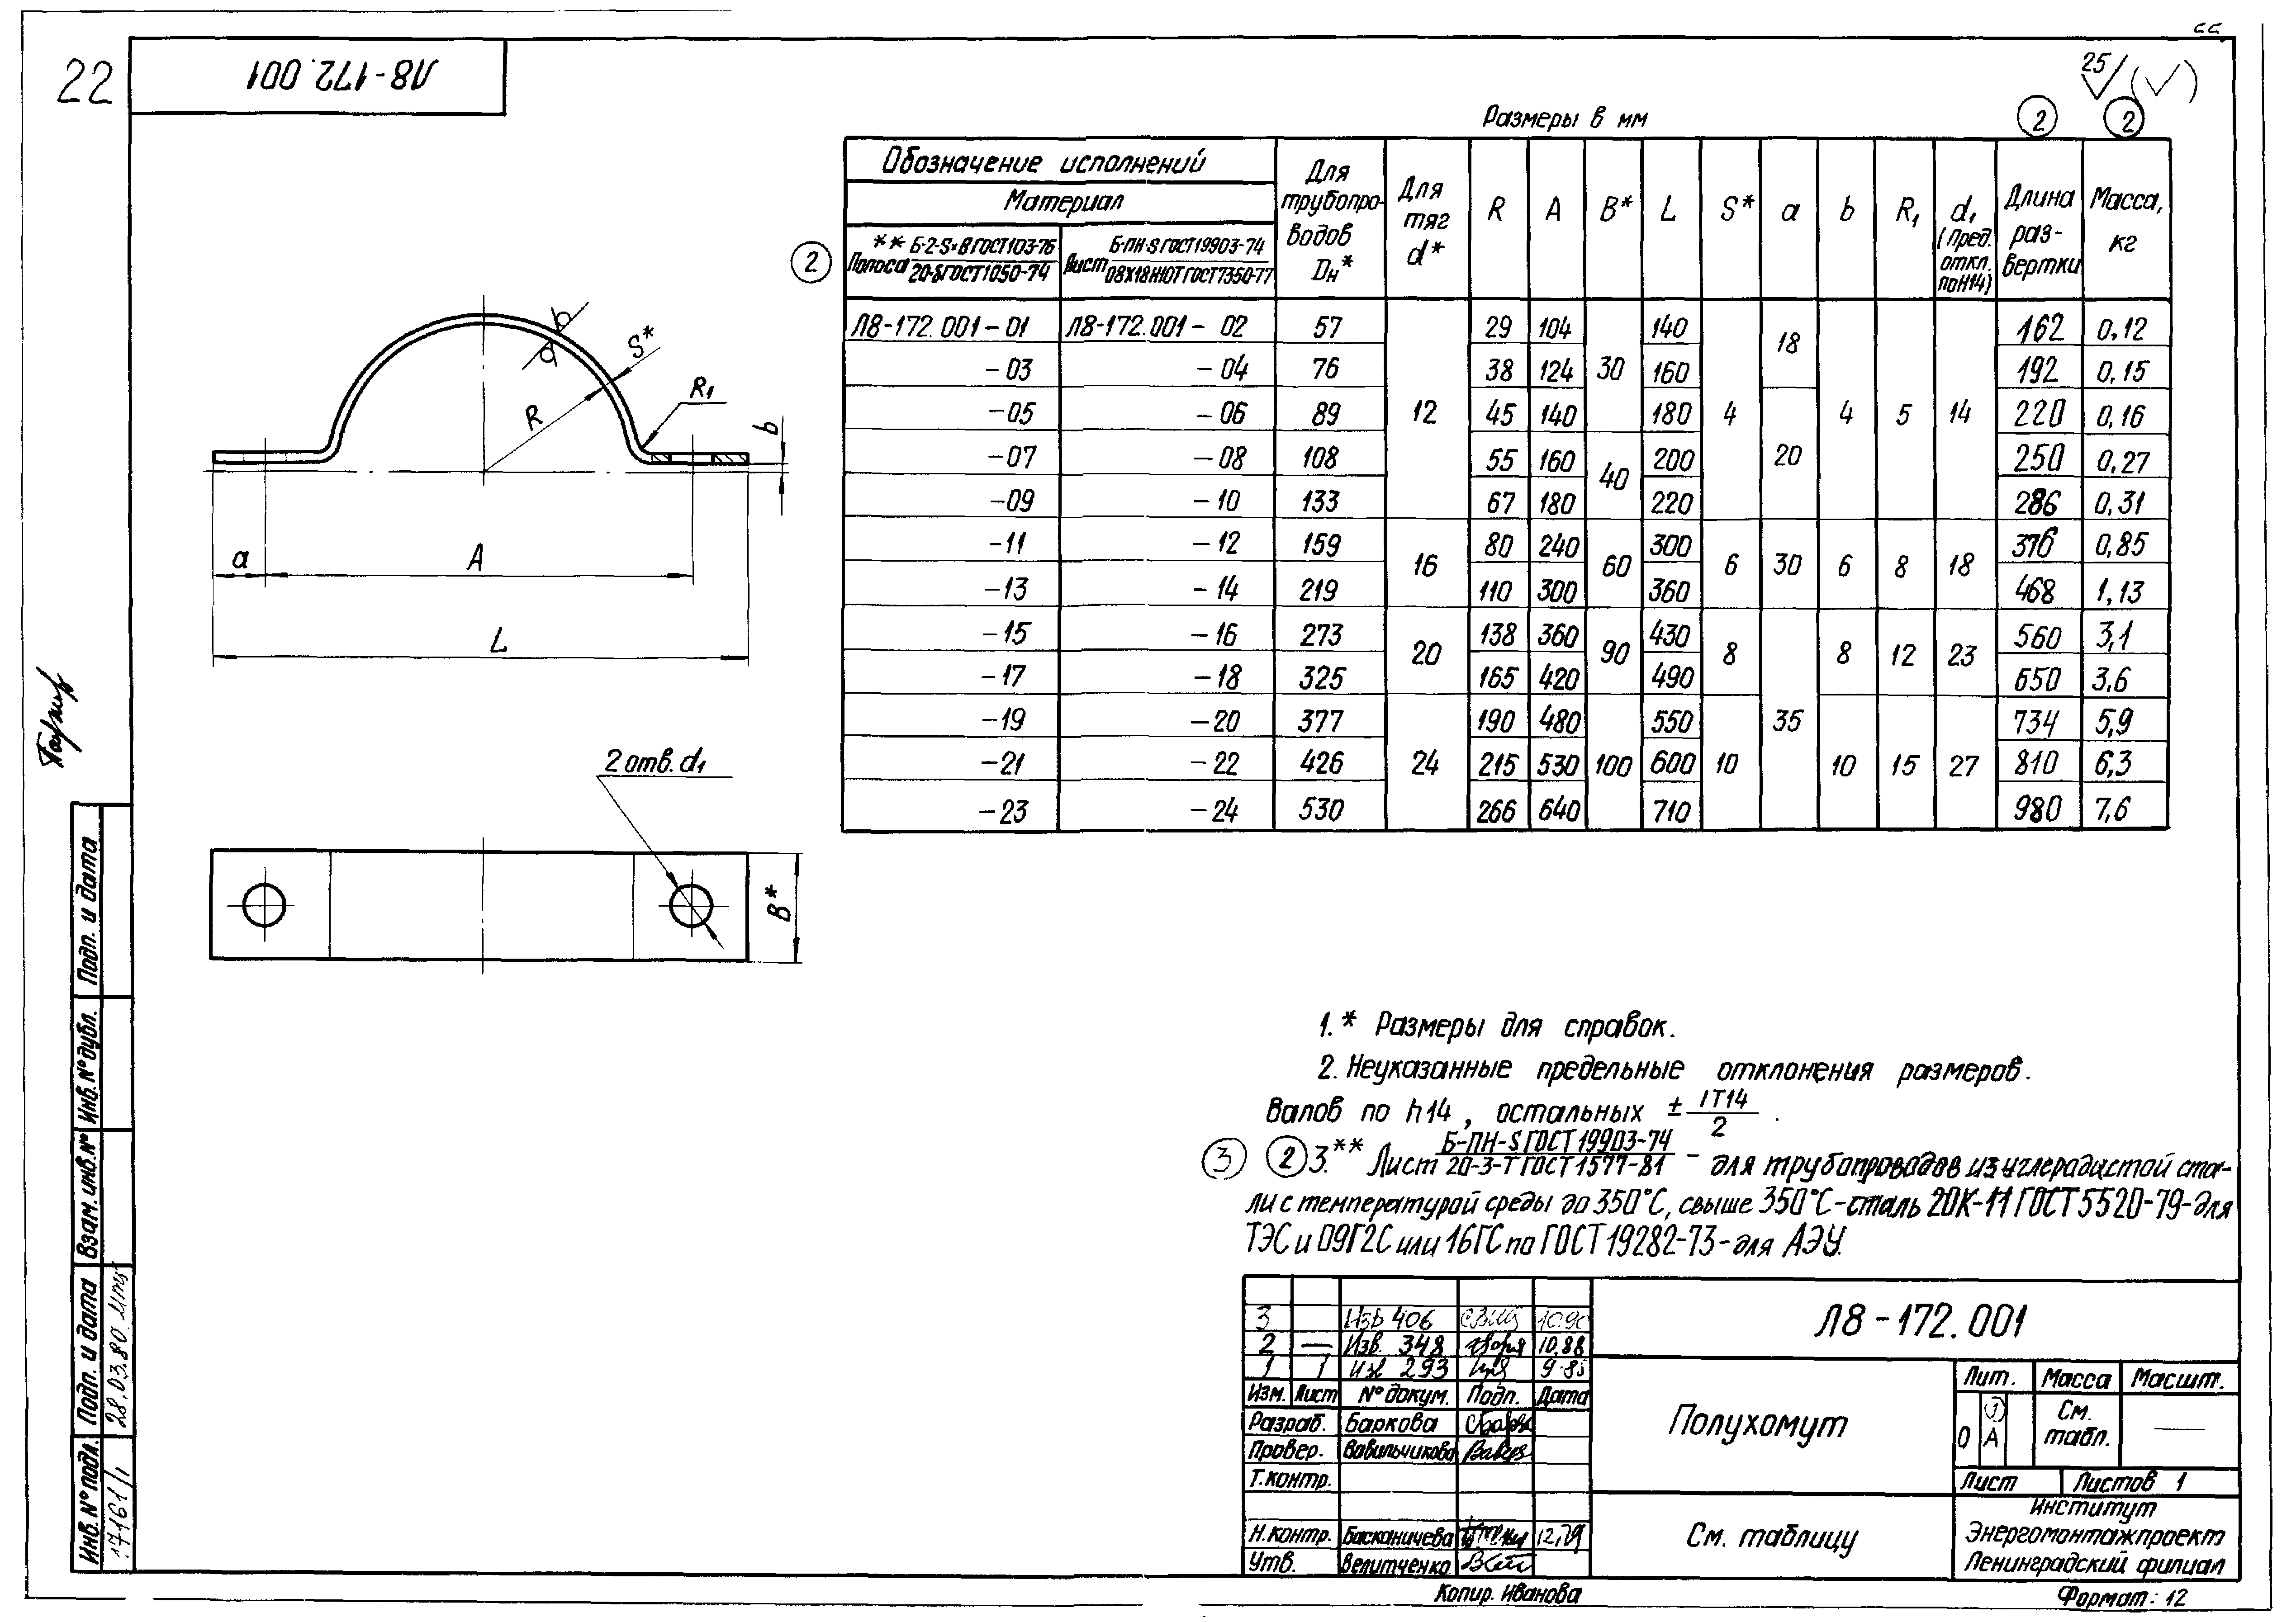 22
Л8-172.001
25
Размеры в мм
2
2
Обозначение исполнений
Материал
2
** Полоса Б-2-S×B ГОСТ 103-76 / 20-S ГОСТ 1050-74
Лист Б-ПН-S ГОСТ 19903-74 / 08Х18Н10Т ГОСТ 7350-77
Для трубопро-водов Dн*
Для тяг d*
R
A
B*
L
S*
a
b
R1
d1 (Пред. откл. по H14)
Длина раз-вертки
Масса, кг
Л8-172.001-01 Л8-172.001-02 57 12 29 104 30 140 4 18 4 5 14 162 0,12
-03 -04 76 38 124 160 192 0,15
-05 -06 89 45 140 180 20 220 0,16
-07 -08 108 55 160 40 200 250 0,27
-09 -10 133 67 180 220 286 0,31
-11 -12 159 16 80 240 60 300 6 30 6 8 18 376 0,85
-13 -14 219 110 300 360 468 1,13
-15 -16 273 20 138 360 90 430 8 35 8 12 23 560 3,1
-17 -18 325 165 420 490 650 3,6
-19 -20 377 24 190 480 100 550 10 10 15 27 734 5,9
-21 -22 426 215 530 600 810 6,3
-23 -24 530 266 640 710 980 7,6
S*
R1
R
b
a
A
L
2 отв. d1
B*
1.* Размеры для справок.
2. Неуказанные предельные отклонения размеров.
Валов по h14, остальных ± IT14/2.
3 2 3.** Лист Б-ПН-S ГОСТ 19903-74 / 20-3-Т ГОСТ 1577-81 - для трубопроводов из углеродистой ста-
ли с температурой среды до 350°С, свыше 350°С-сталь 20К-11 ГОСТ 5520-79-для
ТЭС и 09Г2С или 16ГС по ГОСТ 19282-73-для АЭУ.
3 Изв 406 10.90
2 — Изв. 348 10.88
1 1 293
Изм. Лист № докум. Подп. Дата
Разраб. Баркова
Провер. Вавильчикова
Т.контр.
Н.контр. Басканичева 12.79
Утв. Велитченко
Л8-172.001
Полухомут
См. таблицу
Лит. Масса Масшт.
1
О А См. табл. —
Лист Листов 1
Институт
Энергомонтажпроект
Ленинградский филиал
Копир. Иванова
Формат: 12
Подп. и дата
Инв. № дубл.
Взам. инв. №
Подп. и дата 28.03.80
Инв. № подл. 17161/1